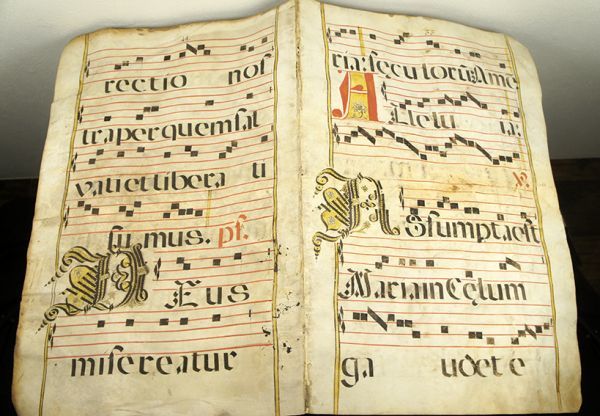 rectio nos
traperquemsal
vatietlibera ti
su mus. ps.
Deus
misereatur
ria: seculorũ Ame
Allelu ia:
℣.
Assumpta est
Maria in Cęlum
ga udet e